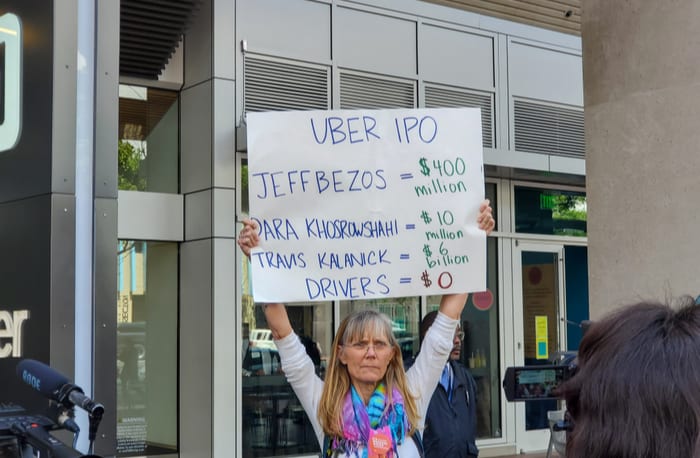 UBER IPO
JEFF BEZOS = $400 million
DARA KHOSROWSHAHI = $10 million
TRAVIS KALANICK = $6 billion
DRIVERS = $0
er
RODE
WARNING